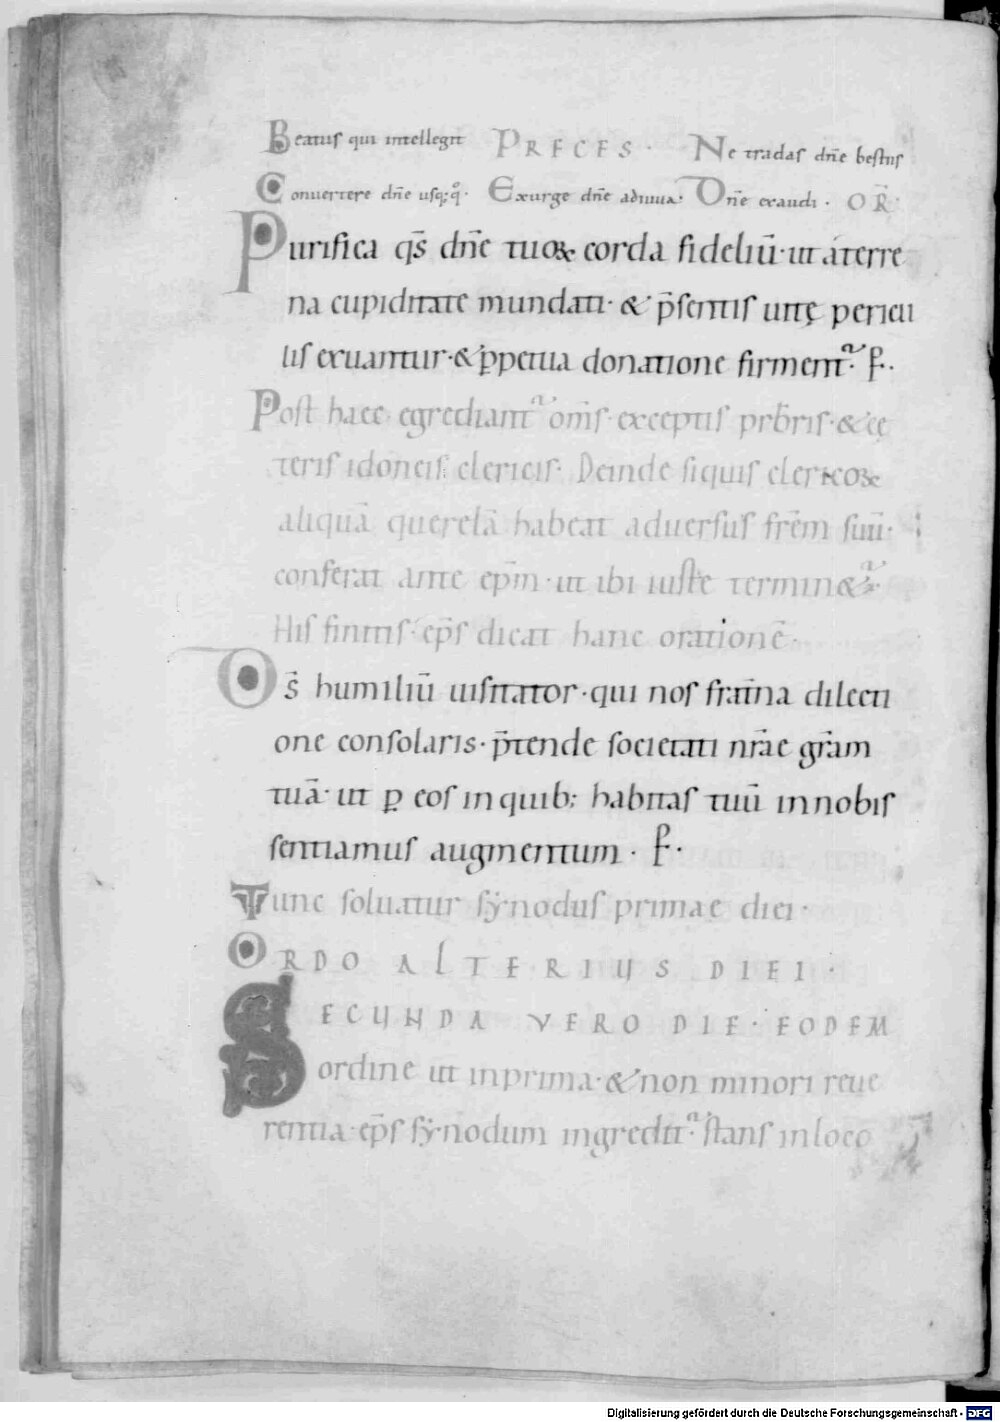 Beatus qui intellegit PRECES · Ne tradas dn̄e bestiis
Conuertere dn̄e usq;q̊· Exurge dn̄e adiuua· Dn̄e exaudi · OR̄
Purifica qs̄ dn̄e tuoꝝ corda fideliū· ut áterre
na cupiditate mundati· & p̄sentis uitę pericu
lis exuantur·&ꝑpetua donatione firment᷑· ꝑ·
Post haec egrediant᷑ om̄s exceptis prb̄ris·& cę
teris idoneis clericis· Deinde siquis clericoꝝ
aliquā querelā habeat aduersus frēm suū·
conferat ante ep̄m·ut ibi iuste termin&᷑·
His finitis·ep̄s dicat hanc orationē·
Ds̄ humiliū uisitator·qui nos frat̄na dilecti
one consolaris·p̄tende societati nr̄ae gr̄am
tuā·ut ꝑ eos inquib; habitas tuū innobis
sentiamus augmentum · ꝑ·
Tunc soluatur sẏnodus primae diei·
ORDO ALTERIUS DIEI·
SECUNDA VERO DIE·EODEM
ordine ut inprima·&non minori reue
rentia·ep̄s sẏnodum ingredit᷑·stans inloco
Digitalisierung gefördert durch die Deutsche Forschungsgemeinschaft - DFG